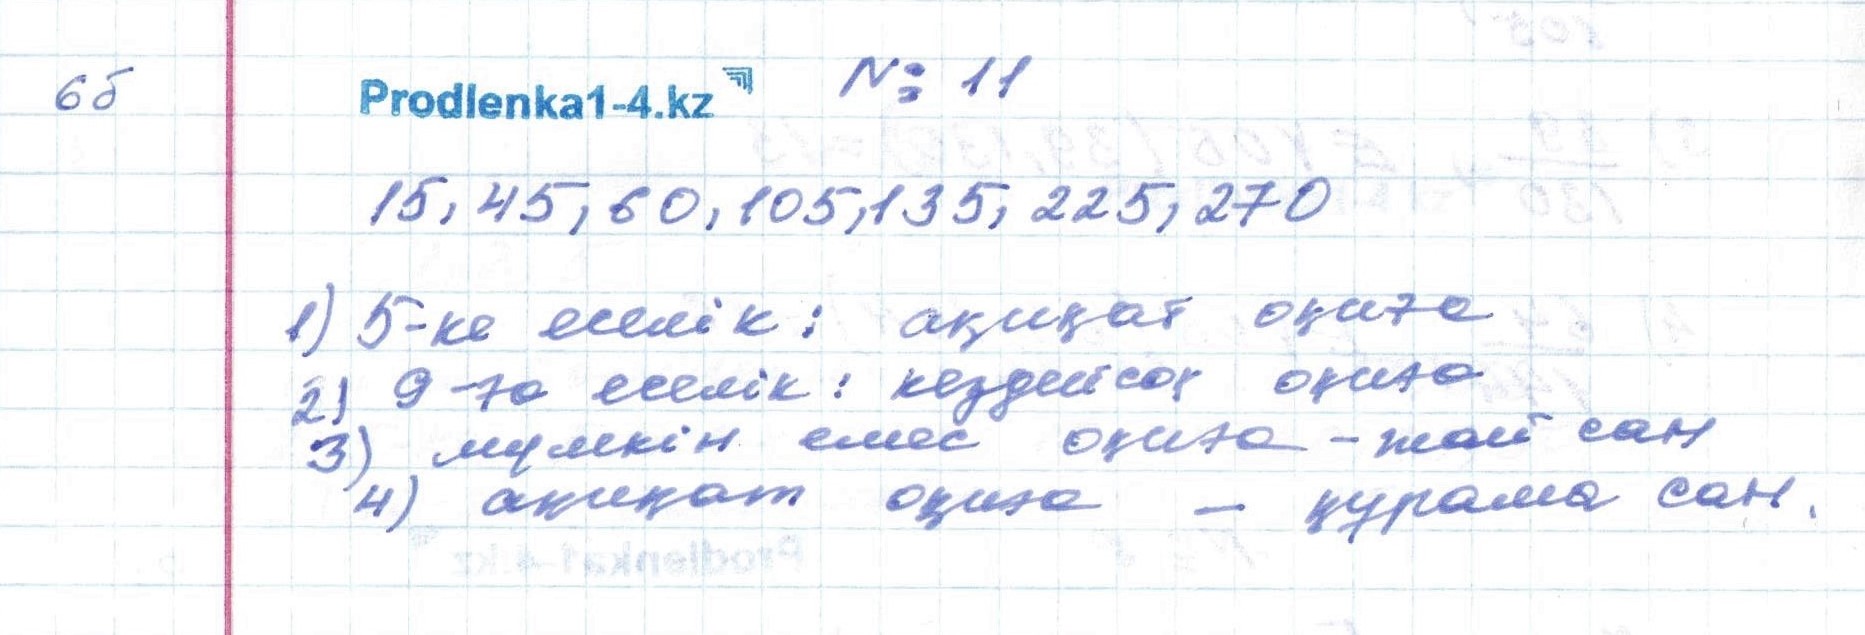 6б Prodlenka1-4.kz № 11
15, 45, 60, 105, 135, 225, 270
1) 5-ке еселік: ақиқат оқиға
2) 9-ға еселік: кездейсоқ оқиға
3) мүмкін емес оқиға - жай сан
4) ақиқат оқиға - құрама сан.